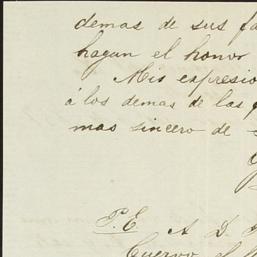 demas de sus fa
hagan el honor
Mis expresio
á los demas de las
mas sincero de
P.E. A D.
Cuervo el